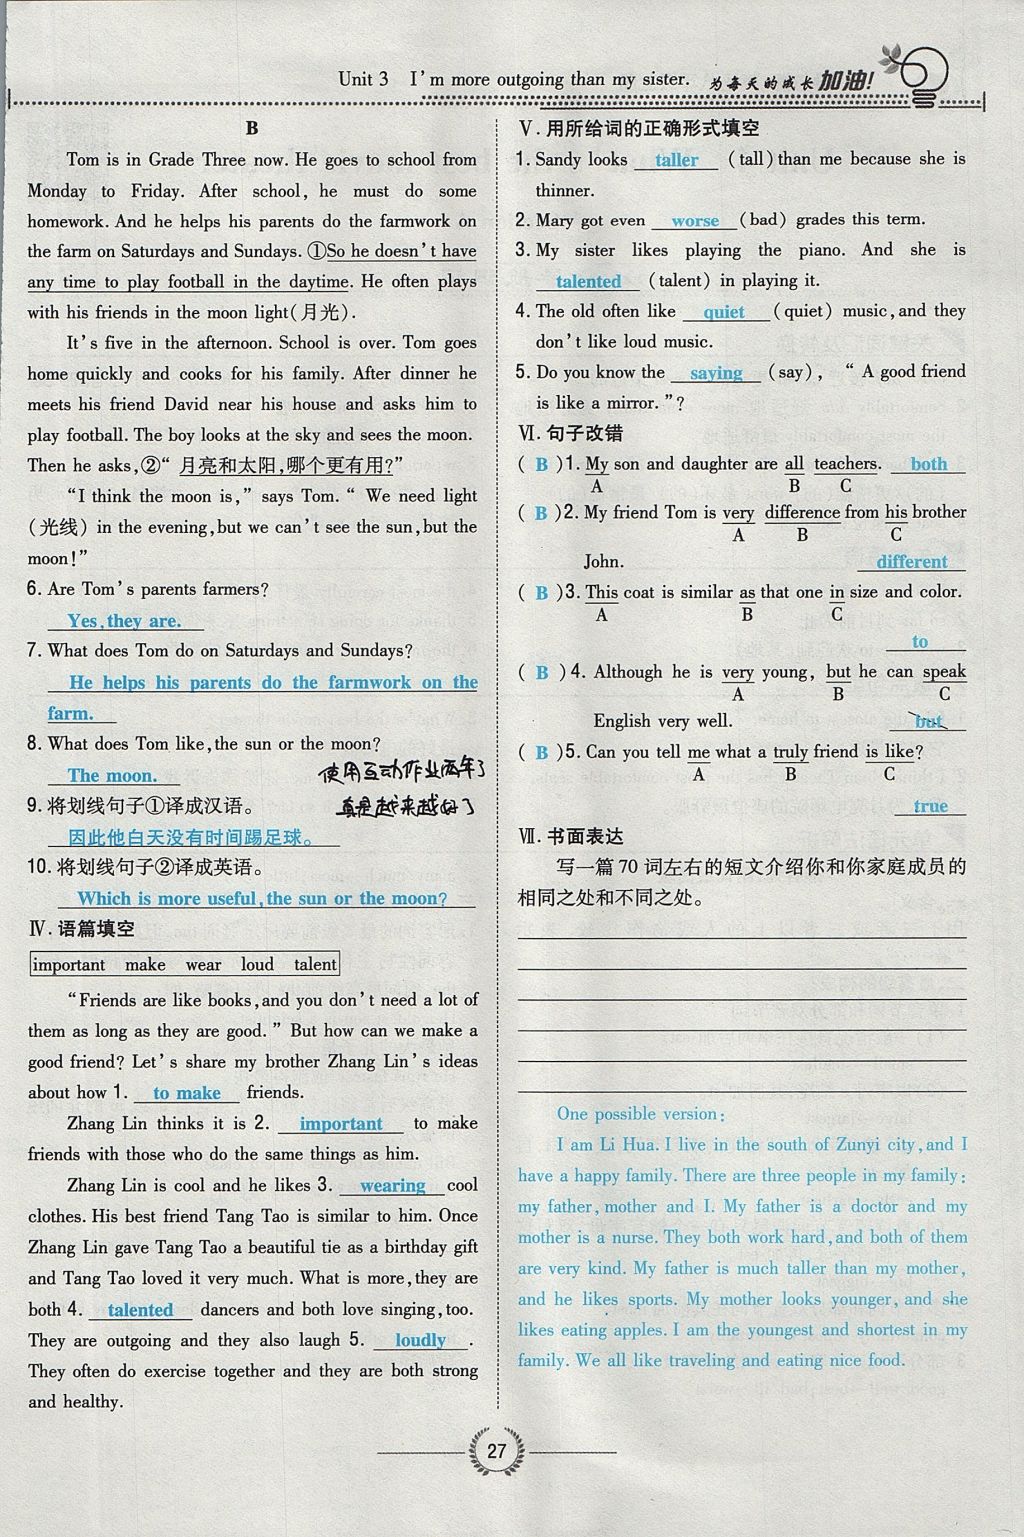 Unit 3 I'm more outgoing than my sister. 为每天的成长加油!
B
Tom is in Grade Three now. He goes to school from
Monday to Friday. After school, he must do some
homework. And he helps his parents do the farmwork on
the farm on Saturdays and Sundays. ①So he doesn't have
any time to play football in the daytime. He often plays
with his friends in the moon light(月光).
It's five in the afternoon. School is over. Tom goes
home quickly and cooks for his family. After dinner he
meets his friend David near his house and asks him to
play football. The boy looks at the sky and sees the moon.
Then he asks,②“月亮和太阳,哪个更有用?”
“I think the moon is,” says Tom. “ We need light
(光线) in the evening,but we can't see the sun,but the
moon!”
6. Are Tom's parents farmers?
Yes,they are.
7. What does Tom do on Saturdays and Sundays?
He helps his parents do the farmwork on the
farm.
8. What does Tom like,the sun or the moon?
The moon.
使用互动作业两年了
真是越来越好了
9. 将划线句子①译成汉语。
因此他白天没有时间踢足球。
10. 将划线句子②译成英语。
Which is more useful,the sun or the moon?
Ⅳ. 语篇填空
important make wear loud talent
“Friends are like books,and you don't need a lot of
them as long as they are good.” But how can we make a
good friend? Let's share my brother Zhang Lin's ideas
about how 1. to make friends.
Zhang Lin thinks it is 2. important to make
friends with those who do the same things as him.
Zhang Lin is cool and he likes 3. wearing cool
clothes. His best friend Tang Tao is similar to him. Once
Zhang Lin gave Tang Tao a beautiful tie as a birthday gift
and Tang Tao loved it very much. What is more,they are
both 4. talented dancers and both love singing,too.
They are outgoing and they also laugh 5. loudly.
They often do exercise together and they are both strong
and healthy.
Ⅴ. 用所给词的正确形式填空
1. Sandy looks taller (tall)than me because she is
thinner.
2. Mary got even worse (bad) grades this term.
3. My sister likes playing the piano. And she is
talented (talent) in playing it.
4. The old often like quiet (quiet) music,and they
don't like loud music.
5. Do you know the saying (say), “ A good friend
is like a mirror.”?
Ⅵ. 句子改错
( B )1. My son and daughter are all teachers. both
A B C
( B )2. My friend Tom is very difference from his brother
A B C
John. different
( B )3. This coat is similar as that one in size and color.
A B C
to
( B )4. Although he is very young, but he can speak
A B C
English very well. but
( B )5. Can you tell me what a truly friend is like?
A B C
true
Ⅶ. 书面表达
写一篇 70 词左右的短文介绍你和你家庭成员的
相同之处和不同之处。
One possible version:
I am Li Hua. I live in the south of Zunyi city,and I
have a happy family. There are three people in my family:
my father,mother and I. My father is a doctor and my
mother is a nurse. They both work hard,and both of them
are very kind. My father is much taller than my mother,
and he likes sports. My mother looks younger,and she
likes eating apples. I am the youngest and shortest in my
family. We all like traveling and eating nice food.
27